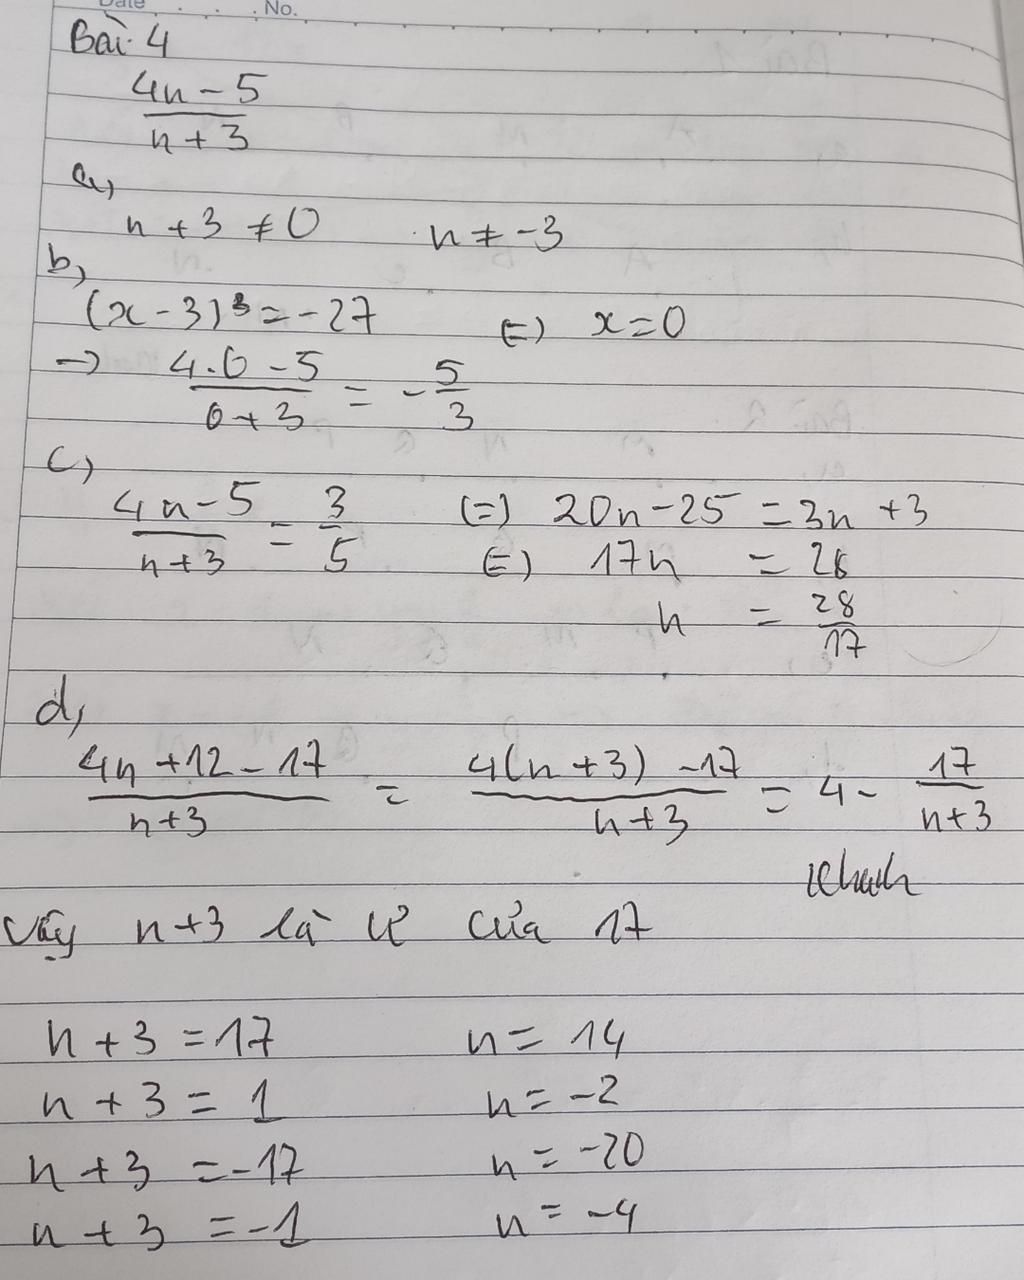 Date . . . No.
Bài 4
4n - 5 / n + 3
a,
n + 3 ≠ 0 n ≠ -3
b,
(x - 3)³ = -27 (=) x = 0
→ 4.0 - 5 / 0 + 3 = - 5/3
c,
4n - 5 / n + 3 = 3/5 (=) 20n - 25 = 3n + 3
(=) 17n = 28
n = 28/17
d,
4n + 12 - 17 / n + 3 = 4(n + 3) - 17 / n + 3 = 4 - 17 / n + 3
Vậy n + 3 là ư của 17
n + 3 = 17 n = 14
n + 3 = 1 n = -2
n + 3 = -17 n = -20
n + 3 = -1 n = -4